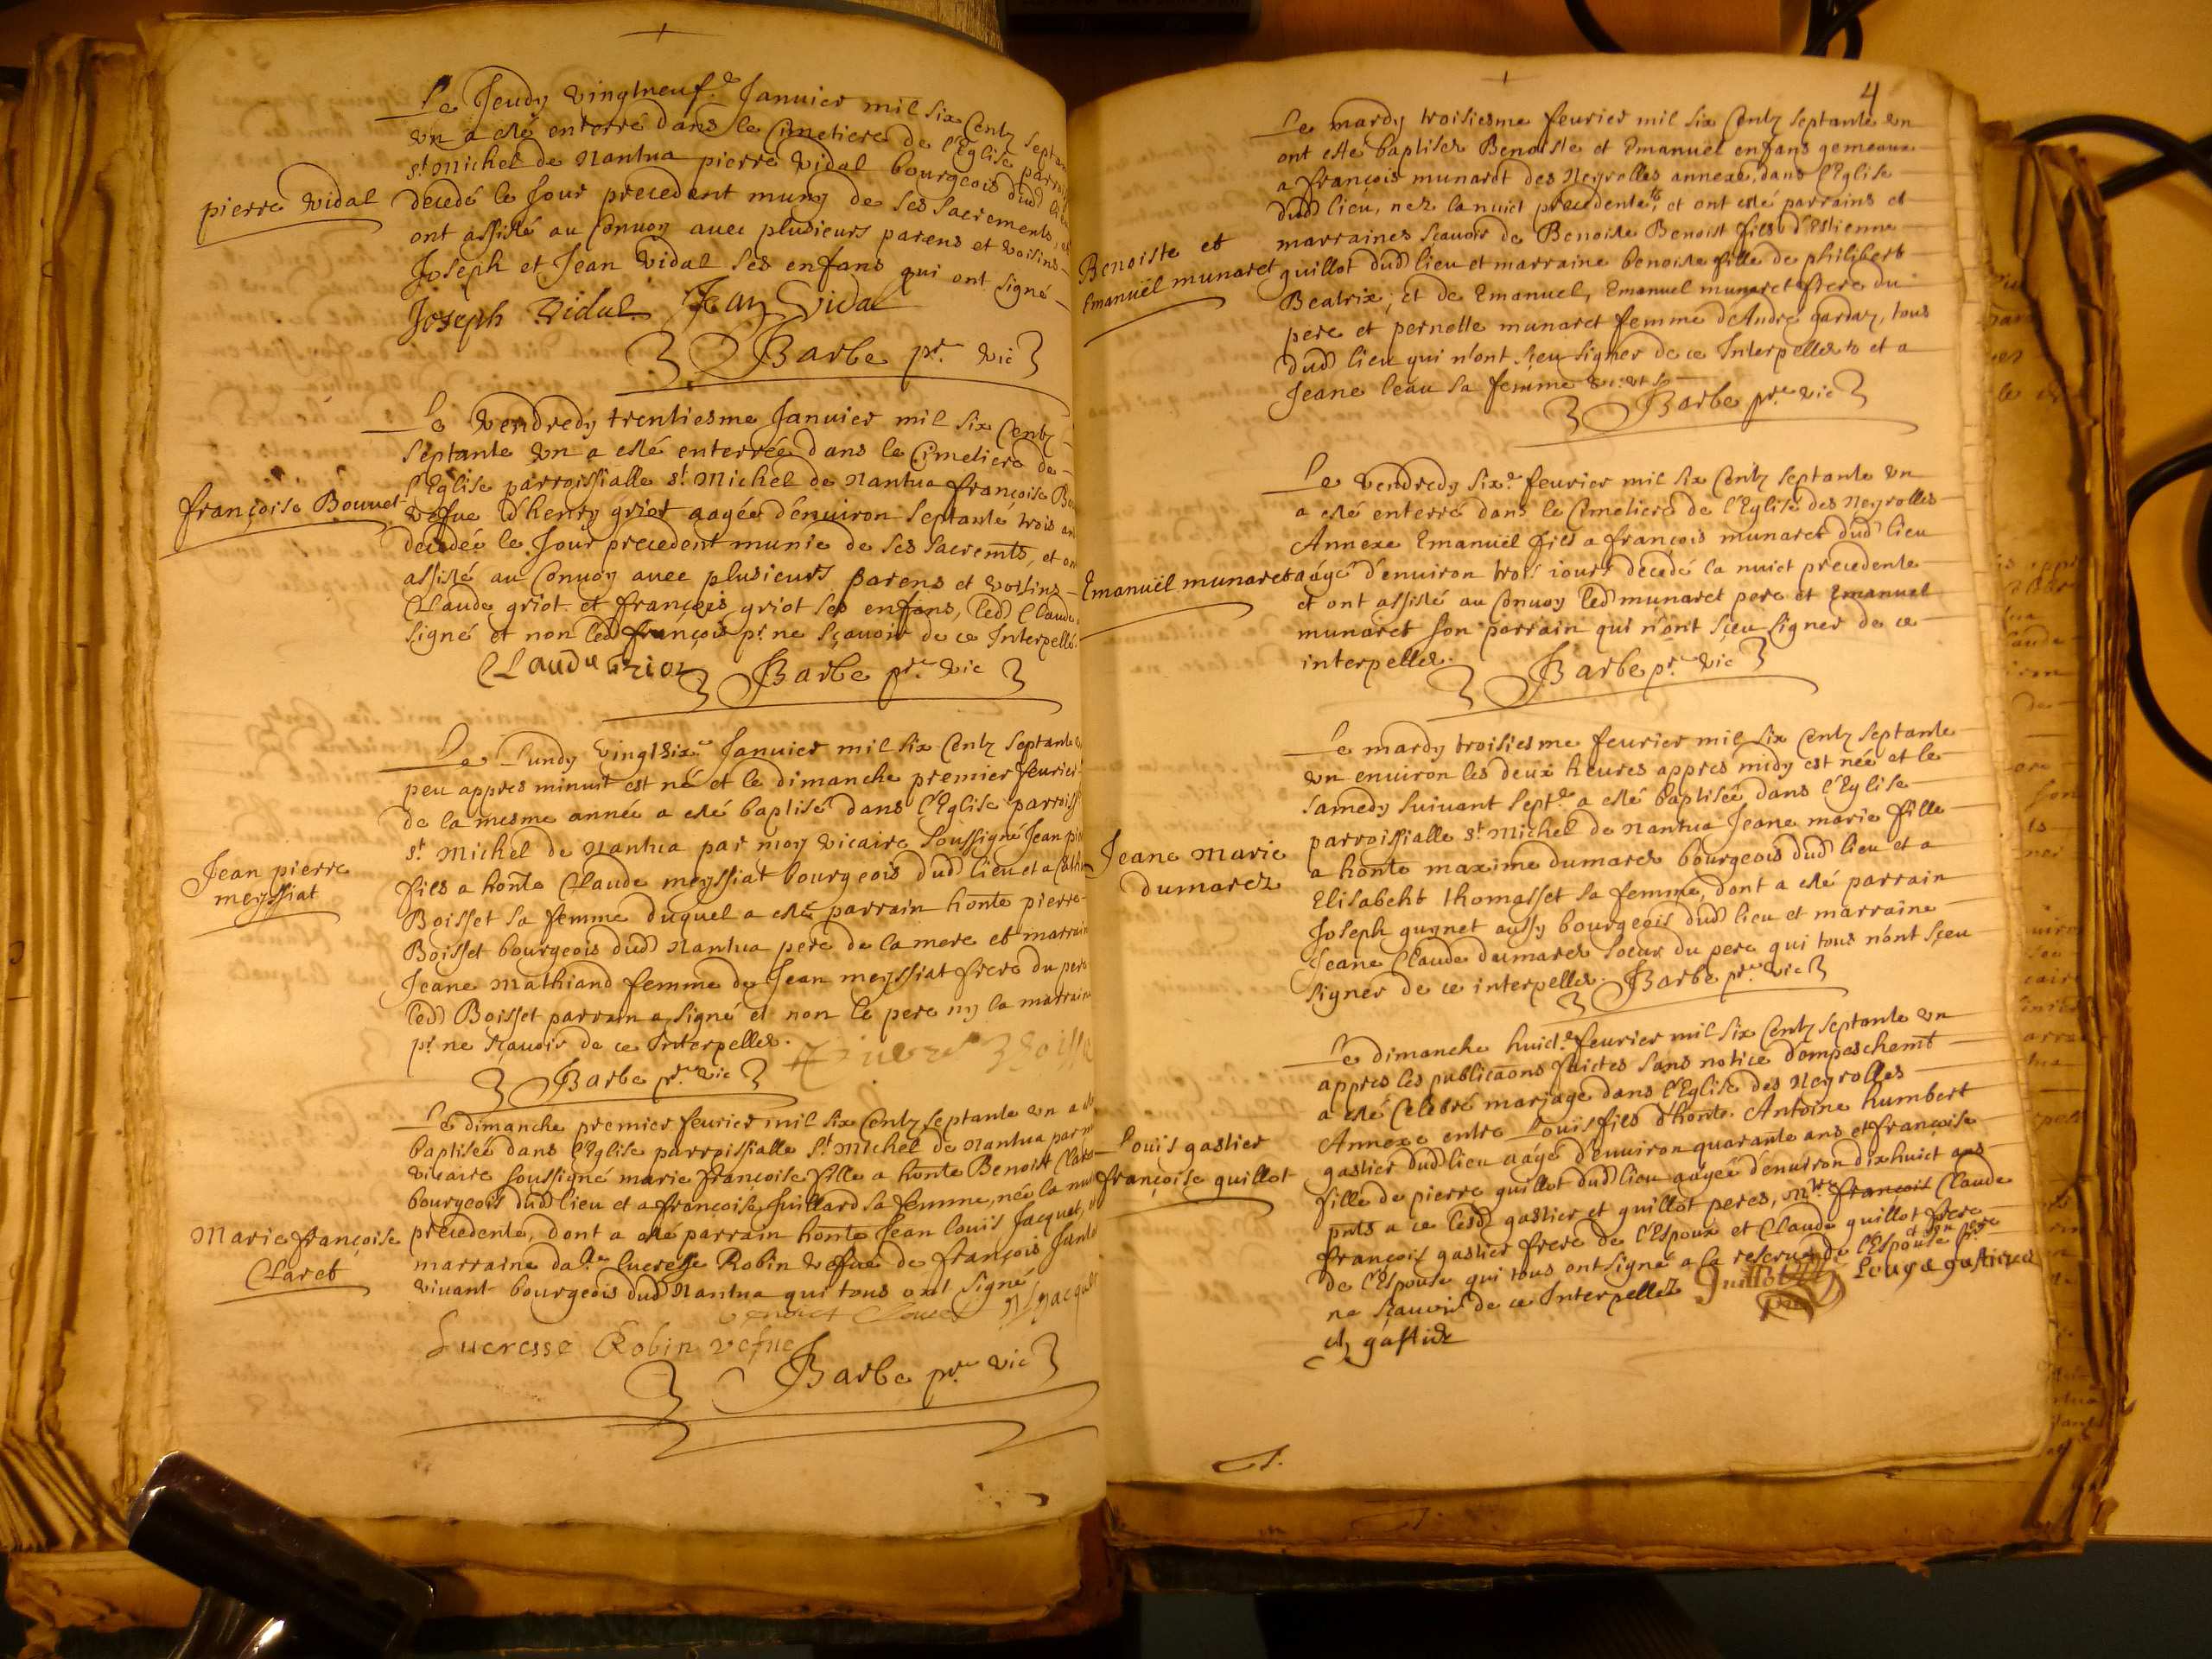 Le Jeudy vingtneuf.e Januier mil six Centz septan
vn a esté enterré dans le Cimetiere de l'Eglise parrois
st Michel de Nantua pierre vidal bourgeois dud lieu
pierre vidal
decedé le Jour precedent muny de ses sacrements, et
ont assisté au Conuoy auec plusieurs parens et voisins
Joseph et Jean vidal ses enfans qui ont signé
Joseph vidal Jean Vidal
Barbe pr. vic
Le vendredy trentiesme Januier mil six Centz
septante vn a esté enterrée dans le Cimetiere de
l'Eglise parroissialle st Michel de Nantua françoise Bou
françoise Bouuet
vefue d'henry griot aagée d'enuiron septante trois an
decedée le Jour precedent munie de ses sacremts, et on
assisté au Conuoy auec plusieurs parens et voisins
Claude griot et françois griot ses enfans, led Claude
signé et non led françois pr ne sçauoir de ce Interpellé.
Claude Griot
Barbe pr. vic
Le Lundy vingtsix.e Januier mil six Centz septante
peu appres minuit est né et le dimanche premier feurier
de la mesme année a esté baptisé dans l'Eglise parroiss
st Michel de Nantua par moy vicaire soussigné Jean pie
Jean pierre
meyssiat
fils a honte Claude meyssiat bourgeois dud lieu et a Cath
Boisset sa femme duquel a esté parrain honte pierre
Boisset bourgeois dud Nantua pere de la mere et marrain
Jeane Mathiand femme de Jean meyssiat frere du pere
led Boisset parrain a signé et non le pere ny la marraine
pr ne sçauoir de ce Interpellez.
Barbe pr. vic
Le dimanche premier feurier mil six Centz septante vn a es
baptisée dans l'Eglise parroissialle st Michel de Nantua par m
vicaire soussigné marie françoise fille a honte Benoist Claret
bourgeois dud lieu et a françoise Juillard sa femme, née la nui
Marie françoise
Claret
precedente, dont a esté parrain honte Jean louis Jacquet,
marraine da.lle lucresse Robin vefue de françois
viuant bourgeois dud Nantua qui tous ont signé
benoict Claret
Lucresse Robin vefue
Barbe pr. vic
4
Le mardy troisiesme feurier mil six Centz septante vn
ont esté baptisez Benoiste et Emanuel enfans gemeaux
a françois munaret des Neyrolles annexe, dans l'Eglise
dud lieu, nez la nuict precedente, et ont esté parrains et
Benoiste et
Emanuël munaret
marraines sçauoir de Benoiste Benoist fils d'Estienne
guillot dud lieu et marraine benoiste fille de philibert
Beatrix; et de Emanuel, Emanuel munaret frere du
pere et pernette munaret femme d'André garday, tous
dud lieu qui n'ont sçeu signer de ce Interpellez et a
Jeane leau sa femme
Barbe pr. vic
Le vendredy six.e feurier mil six Centz septante vn
a esté enterré dans le Cimetiere de l'Eglise des Neyrolles
Annexe Emanuël fils a françois munaret dud lieu
Emanuël munaret
aagé d'enuiron trois iours decedé la nuict precedente
et ont assisté au Conuoy led munaret pere et Emanuel
munaret son parrain qui n'ont sçeu signer de ce
interpellez.
Barbe pr. vic
Le mardy troisiesme feurier mil six Centz septante
vn enuiron les deux heures appres midy est née et le
samedy suiuant sept.e a esté baptisée dans l'Eglise
parroissialle st Michel de Nantua Jeane marie fille
Jeane Marie
dumarez
a honte maxime dumarez bourgeois dud lieu et a
Elisabeht thomasset sa femme, dont a esté parrain
Joseph guynet aussy bourgeois dud lieu et marraine
Jeane Claude dumarez soeur du pere qui tous n'ont sçeu
signer de ce interpellez.
Barbe pr. vic
Le dimanche huict.e feurier mil six Centz septante vn
appres les publicaons faictes sans notice d'empeschemt
a esté Celebré mariage dans l'Eglise des Neyrolles
Annexe entre Louis fils d'honte. Antoine humbert
Louis gastier
françoise guillot
gastier dud lieu aagé d'enuiron quarante ans et françoise
fille de pierre guillot dud lieu aagée d'enuiron dixhuict ans
pnts a ce lesd gastier et guillot peres, françois Claude
françois gastier frere de l'Espoux et Claude guillot frere
de l'Espouse qui tous ont signé a la reserue de l'Espouse et son pere pr
ne sçauoir de ce Interpellez
Guillot
Louys gastier
gastier